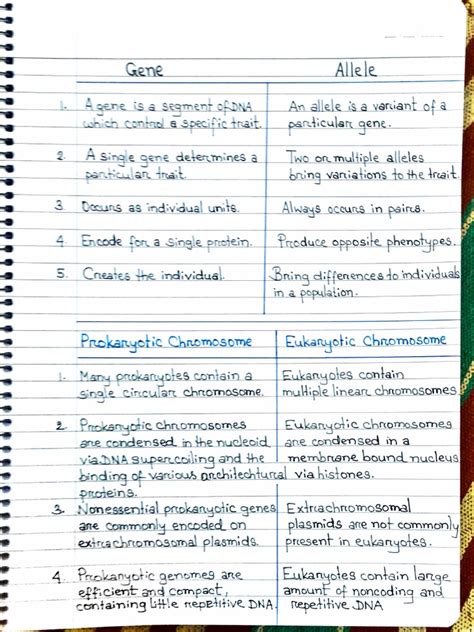 Gene | Allele
1. A gene is a segment of DNA | An allele is a variant of a
which control a specific trait. | particular gene.
2. A single gene determines a | Two or multiple alleles
particular trait. | bring variations to the trait.
3. Occurs as individual units. | Always occurs in pairs.
4. Encode for a single protein. | Produce opposite phenotypes.
5. Creates the individual. | Bring differences to individuals
in a population.
Prokaryotic Chromosome | Eukaryotic Chromosome
1. Many prokaryotes contain a | Eukaryotes contain
single circular chromosome. | multiple linear chromosomes.
2. Prokaryotic chromosomes | Eukaryotic chromosomes
are condensed in the nucleoid | are condensed in a
via DNA supercoiling and the | membrane bound nucleus
binding of various architechtural | via histones.
proteins.
3. Nonessential prokaryotic genes | Extrachromosomal
are commonly encoded on | plasmids are not commonly
extrachromosomal plasmids. | present in eukaryotes.
4. Prokaryotic genomes are | Eukaryotes contain large
efficient and compact, | amount of noncoding and
containing little repetitive DNA. | repetitive DNA